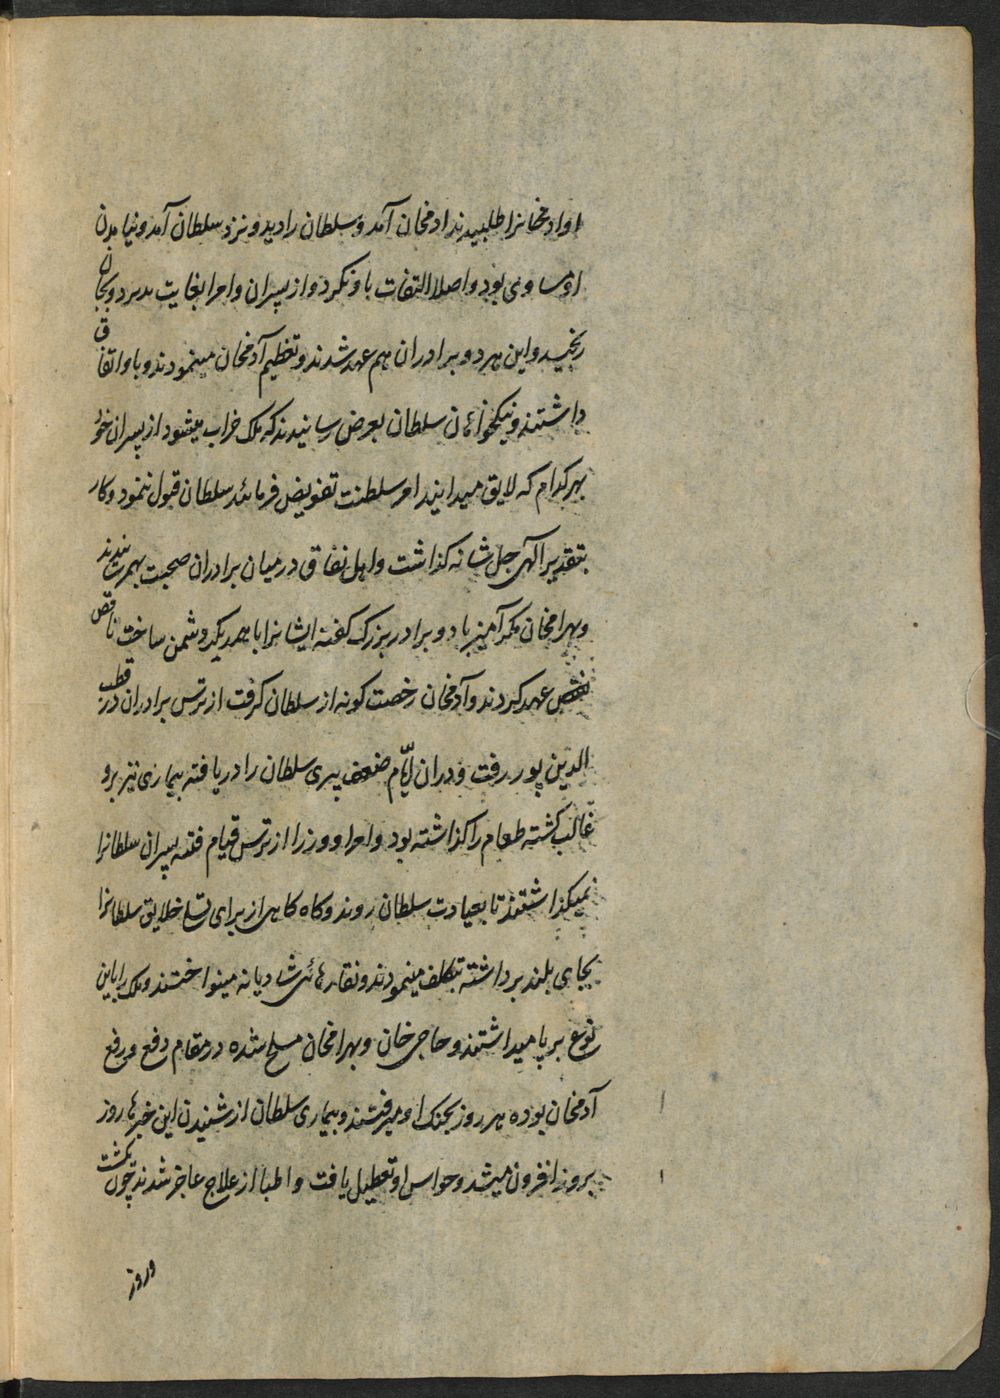 او ادمخانرا طلبیدند ادمخان آمد و سلطان را دید و نزد سلطان آمد و نیامدن
او مساوی بود و اصلا التفات باو نکرد و از پسران و امرا بغایت بدبرد و بجان
رنجید و این هر دو برادران هم عهد شدند و تعظیم آدمخان مینمودند و با او اتفاق
داشتند و نیکخواهان سلطان بعرض رسانیدند که ملک خراب میشود از پسران خود
بهر کدام که لایق میدانید امر سلطنت تفویض فرمائید سلطان قبول ننمود و کار
بتقدیر آلهی جل شانه کذاشت و اهل نفاق درمیان برادران صحبت بهمرسانیدند
و بهرامخان مکر آمیز با دو برادر بزرک کفته ایشانرا با همدیکر دشمن ساخت ناقص
نقض عهد کردند و آدمخان رخصت کونه از سلطان کرفت از ترس برادران در قطب
الدین پور رفت و دران ایّام ضعف پیری سلطان را دریافته بیماری نیز برو
غالب کشته طعام را کذاشته بود و امرا و وزرا از ترس قیام فتنه پسران سلطانرا
نمیکذاشتند تا بعیادت سلطان روند و کاه کاهی از برای تسلی خلایق سلطانرا
بجای بلند برداشته تکلف مینمودند و نقارهائی شادیانه مینواختند و ملک را باین
نوع بر پا میداشتند و حاجی خان و بهرامخان مسلح شده در مقام دفع و رفع
آدمخان بوده هر روز بجنک او میرفتند و بیماری سلطان از شنیدن این خبرها روز
بروز افزون میشد و حواس او تعطیل یافت و اطبا از علاج عاجز شدند چون یکشب
و روز